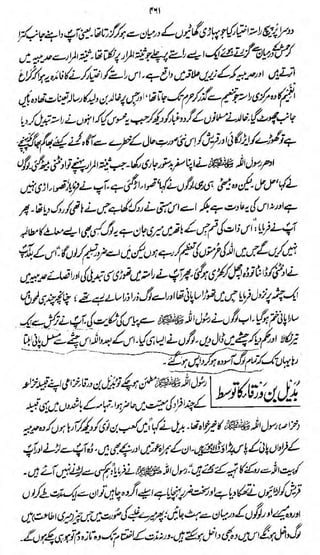 ۴۶۱
دوسرا پرپیچ راستہ اختیار کیا جو پہاڑی گھاٹیوں کے درمیان سے ہو کر گزرتا تھا۔ یعنی آپ داہنے جانب کترا
کر حمش کے درمیان سے گزرتے ہوئے ایک ایسے راستے پر چلے جو ثنیۃ المرار پر نکلتا تھا۔ ثنیۃ المرار سے حدیبیہ میں
اترتے ہیں اور حدیبیہ مکہ کے زیریں علاقہ میں واقع ہے۔ اس راستے کو اختیار کرنے کا فائدہ یہ ہوا کہ کُراع
الغمیم کا وہ مرکزی راستہ جو تنعیم سے گذر کر حرم تک جاتا تھا، اور جس پر خالد بن ولید کا رسالہ تعینات تھا وہ بائیں
جانب چھوٹ گیا۔ خالد نے مسلمانوں کے گرد و غبار کو دیکھ کر جب یہ محسوس کیا کہ انہوں نے راستہ تبدیل کر دیا
ہے تو گھوڑے کو ایڑ لگائی اور قریش کو اس نئی صورت حال کے خطرے سے آگاہ کرنے کیلئے بھاگم بھاگ مکہ پہنچے۔
ادھر رسول اللہ ﷺ نے اپنا سفر بدستور جاری رکھا۔ جب ثنیۃ المرار پہنچے تو اونٹنی بیٹھ گئی۔ لوگوں
نے کہا، حل حل، لیکن وہ بیٹھی ہی رہی۔ لوگوں نے کہا، قصواء اڑ گئی ہے۔ آپ نے فرمایا: قصواء اڑی نہیں
ہے اور نہ اس کی یہ عادت ہے، لیکن اسے اس ہستی نے روک رکھا ہے جس نے ہاتھی کو روک دیا تھا۔ پھر
آپ نے فرمایا: "اس ذات کی قسم جس کے ہاتھ میں میری جان ہے یہ لوگ کسی بھی ایسے معاملے کا مطالبہ
نہیں کریں گے جس میں اللہ کی حرمتوں کی تعظیم کر رہے ہوں لیکن میں اسے ضرور تسلیم کر لوں گا"۔ اس کے بعد آپ
نے اونٹنی کو ڈانٹا تو وہ اچھل کر کھڑی ہو گئی۔ پھر آپ نے راستہ میں تھوڑی سی تبدیلی کی اور اقصائے حدیبیہ میں
ایک چشمہ پر نزول فرمایا جس میں تھوڑا سا پانی تھا اور اسے لوگ ذرا ذرا سا لے رہے تھے، چنانچہ چند ہی لمحوں میں
سارا پانی ختم ہو گیا۔ اب لوگوں نے رسول اللہ ﷺ سے پیاس کی شکایت کی۔ آپ نے ترکش سے ایک
تیر نکالا اور حکم دیا کہ چشمے میں ڈال دیں۔ لوگوں نے ایسا ہی کیا۔ اس کے بعد واللہ اس چشمے سے مسلسل پانی ابلتا
رہا یہاں تک کہ تمام لوگ آسودہ ہو کر واپس ہو گئے۔
بُدَیل بن وَرقاء کا توسط
رسول اللہ ﷺ مطمئن ہو چکے تو بدیل بن ورقاء خزاعی اپنے قبیلہ خزاعہ
کے چند افراد کی معیت میں حاضر ہوا۔ تہامہ کے باشندوں میں یہی قبیلہ
(خزاعہ) رسول اللہ ﷺ کا خیر خواہ تھا۔ بدیل نے کہا: "میں کعب بن لوی کو دیکھ کر آ رہا ہوں کہ وہ حدیبیہ
کے فراواں پانی کے پاس پڑاؤ ڈالے ہوئے ہیں۔ ان کے ہمراہ عورتیں اور بچے بھی ہیں۔ وہ آپ سے لڑنے اور آپ
کو بیت اللہ سے روکنے کا تہیہ کئے ہوئے ہیں"۔ رسول اللہ ﷺ نے فرمایا: "ہم کسی سے لڑنے نہیں آئے ہیں۔
قریش کو لڑائیوں نے توڑ ڈالا ہے اور سخت ضرر پہنچایا ہے اس لیے اگر وہ چاہیں تو ان سے ایک مدت طے کر لوں
اور وہ میرے اور لوگوں کے درمیان سے ہٹ جائیں،
لوگ داخل ہوئے ہیں اس میں وہ بھی داخل ہو سکتے ہیں۔ ورنہ